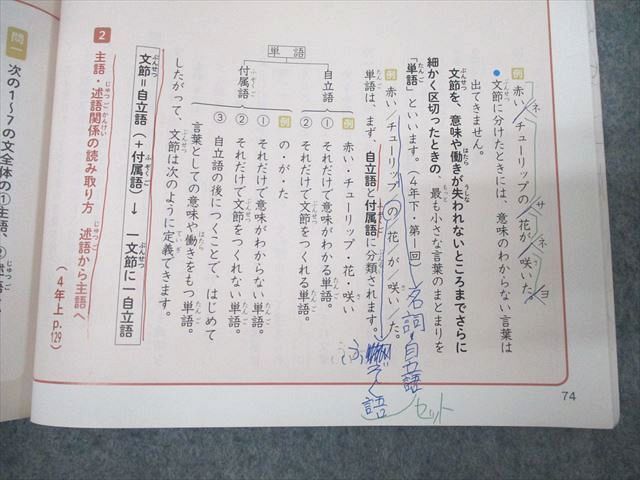 例 赤い／チューリップの／花が／咲いた。
ネ
サ
ネ
ヨ
● 文節に分けたときには、意味のわからない言葉は
出てきません。
文節を、意味や働きが失われないところまでさらに
細かく区切ったときの、最も小さな言葉のまとまりを
「単語」といいます。（4年下・第1回）
例 赤い／チューリップ／の／花／が／咲い／た。
名詞＝自立語
単語は、まず、自立語と付属語に分類されます。
ぞく語
セット
単語
自立語
例 赤い・チューリップ・花・咲い
① それだけで意味がわかる単語。
② それだけで文節をつくれる単語。
付属語
例 の・が・た
① それだけで意味がわからない単語。
② それだけで文節をつくれない単語。
③ 自立語の後につくことで、はじめて
言葉としての意味や働きをもつ単語。
したがって、文節は次のように定義できます。
文節＝自立語（＋付属語）→ 一文節に一自立語
2 主語・述語関係の読み取り方 述語から主語へ
（4年上p.129）
問一 次の1～7の文全体の①主語、②述語
74